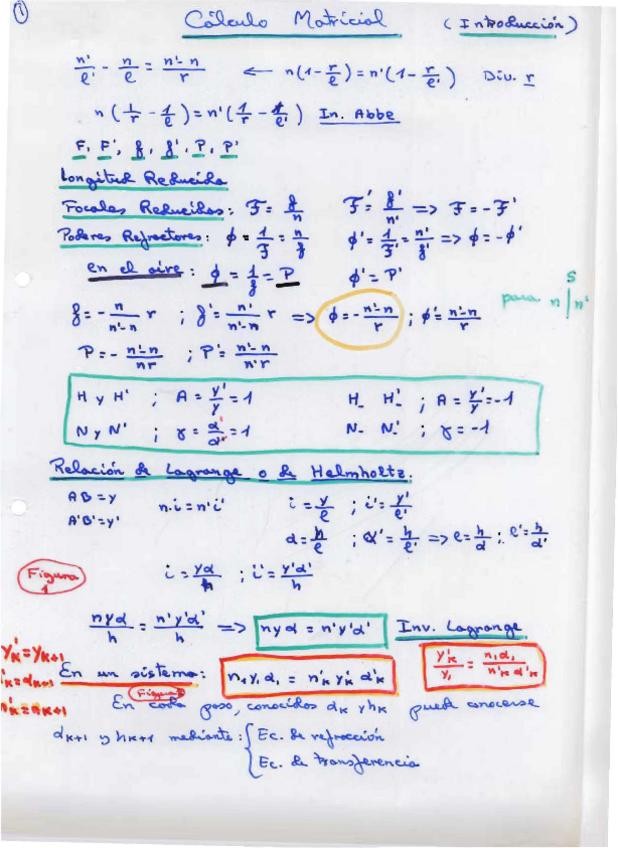 ①
Cálculo Matricial (Introducción)
n'/e' - n/e = n'-n/r ← n(1 - r/e) = n'(1 - r/e') Div. r
n(1/r - 1/e) = n'(1/r - 1/e') In. Abbe
F, F', f, f', P, P'
Longitud Reducida
Focales Reducidas: F = f/n F' = f'/n' => F = -F'
Poderes Refractores: ϕ = 1/F = n/f ϕ' = 1/F' = n'/f' => ϕ = -ϕ'
en el aire: ϕ = 1/f = P ϕ' = P'
para n | n' S
f = - n/n'-n r ; f' = n'/n'-n r => ϕ = - n'-n/r ; ϕ' = n'-n/r
P = - n'-n/nr ; P' = n'-n/n'r
H y H' ; A = y'/y = 1 H_ H_' ; A = y'/y = -1
N y N' ; γ = α'/α = 1 N_ N_' ; γ = -1
Relación de Lagrange o de Helmholtz.
AB = y n.i = n'i' i = y/e ; i' = y'/e'
A'B' = y' α = h/e ; α' = h/e' => e = h/α ; e' = h/α'
Figura 1
i = yα/h ; i' = y'α'/h
nyα/h = n'y'α'/h => nyα = n'y'α' Inv. Lagrange
y'k = yk+1
α'k = αk+1
n'k = nk+1
En un sistema: n1 y1 α1 = n'k y'k α'k y'k/y1 = n1 α1/n'k α'k
Figura
En cada paso, conocidos αk y hk puede conocerse
αk+1 y hk+1 mediante: { Ec. de refracción
Ec. de transferencia